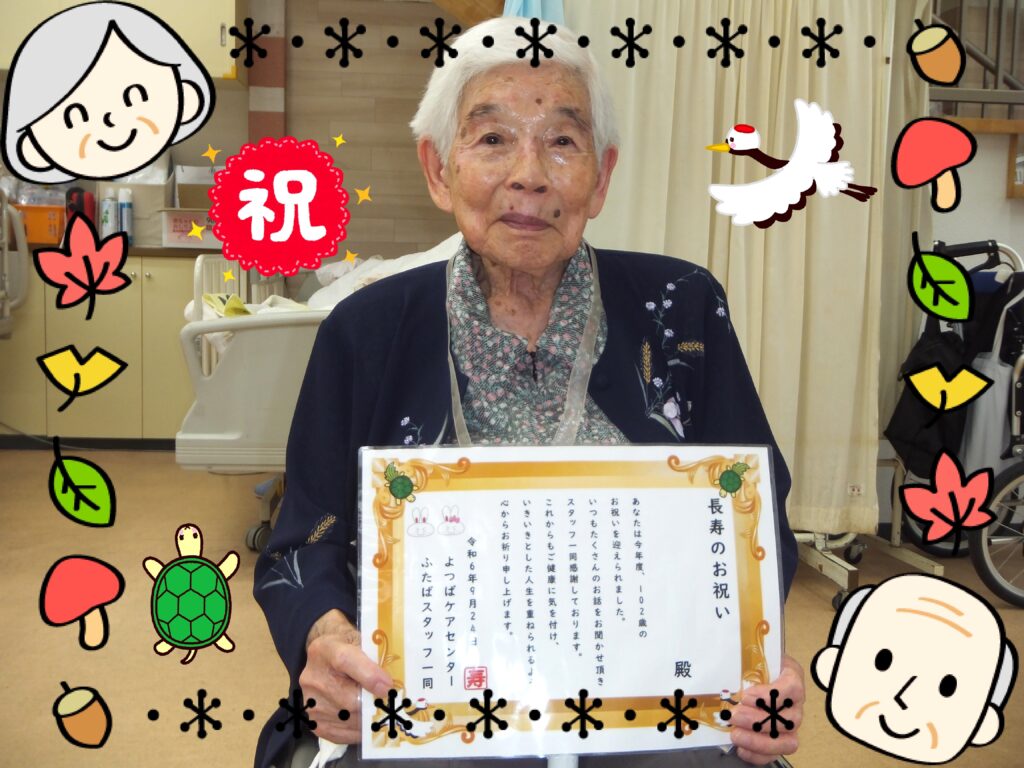 祝
長寿のお祝い
殿
あなたは今年度、102歳の
お祝いを迎えられました。
いつもたくさんのお話をお聞かせ頂き
スタッフ一同感謝しております。
これからもご健康に気を付け、
いきいきとした人生を重ねられるよう
心からお祈り申し上げます。
令和6年9月24日
よつばケアセンター
ふたばスタッフ一同
寿